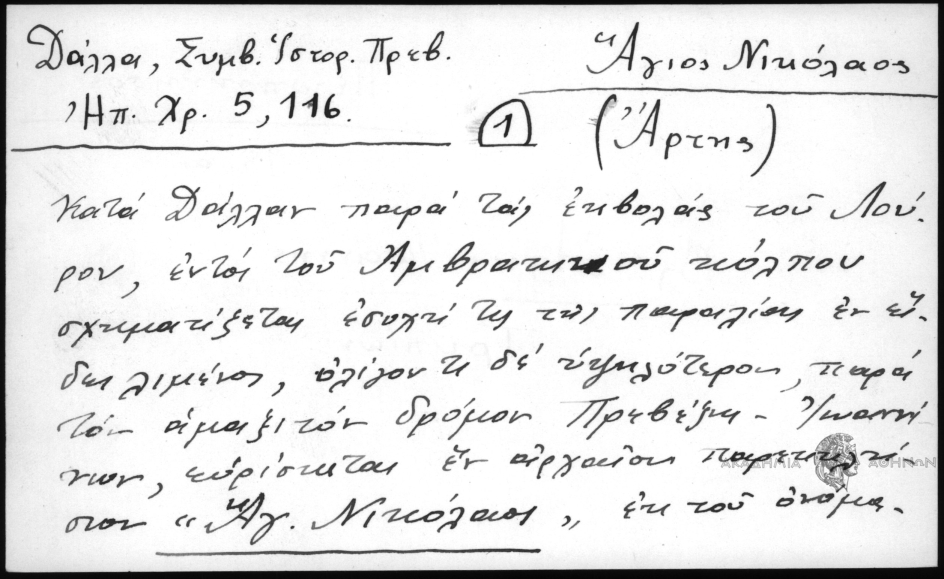 Δάλλα, Συμβ. Ἱστορ. Πρεβ.
Ἠπ. Χρ. 5, 116.
Ἅγιος Νικόλαος
1
(Ἄρτης)
Κατά Δάλλαν παρά τάς ἐκβολάς τοῦ Λού-
ρου, ἐντός τοῦ Ἀμβρακικοῦ κόλπου
σχηματίζεται ἐσοχή τις τῆς παραλίας ἐν εἴ-
δει λιμένος, ὀλίγον τι δέ ὑψηλότερον, παρά
τόν ἁμαξιτόν δρόμον Πρεβέζης - Ἰωαννί
νων, εὑρίσκεται ἕν ἀρχαῖον παρεκκλή-
σιον "Ἅγ. Νικόλαος", ἐκ τοῦ ὀνόμα-
ΑΚΑΔΗΜΙΑ ΑΘΗΝΩΝ